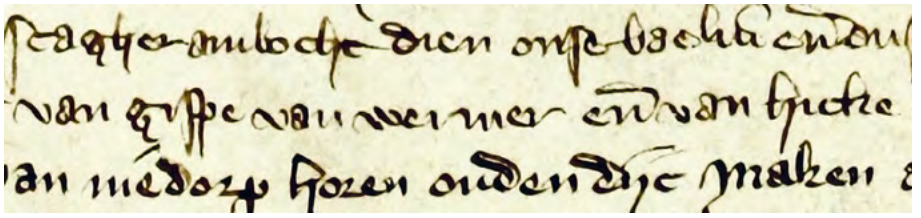 scagher ambocht dien onse baeliu en̄ ons
van gispe van wermer en̄ van hicke
van niedorp horen oudendijc maken